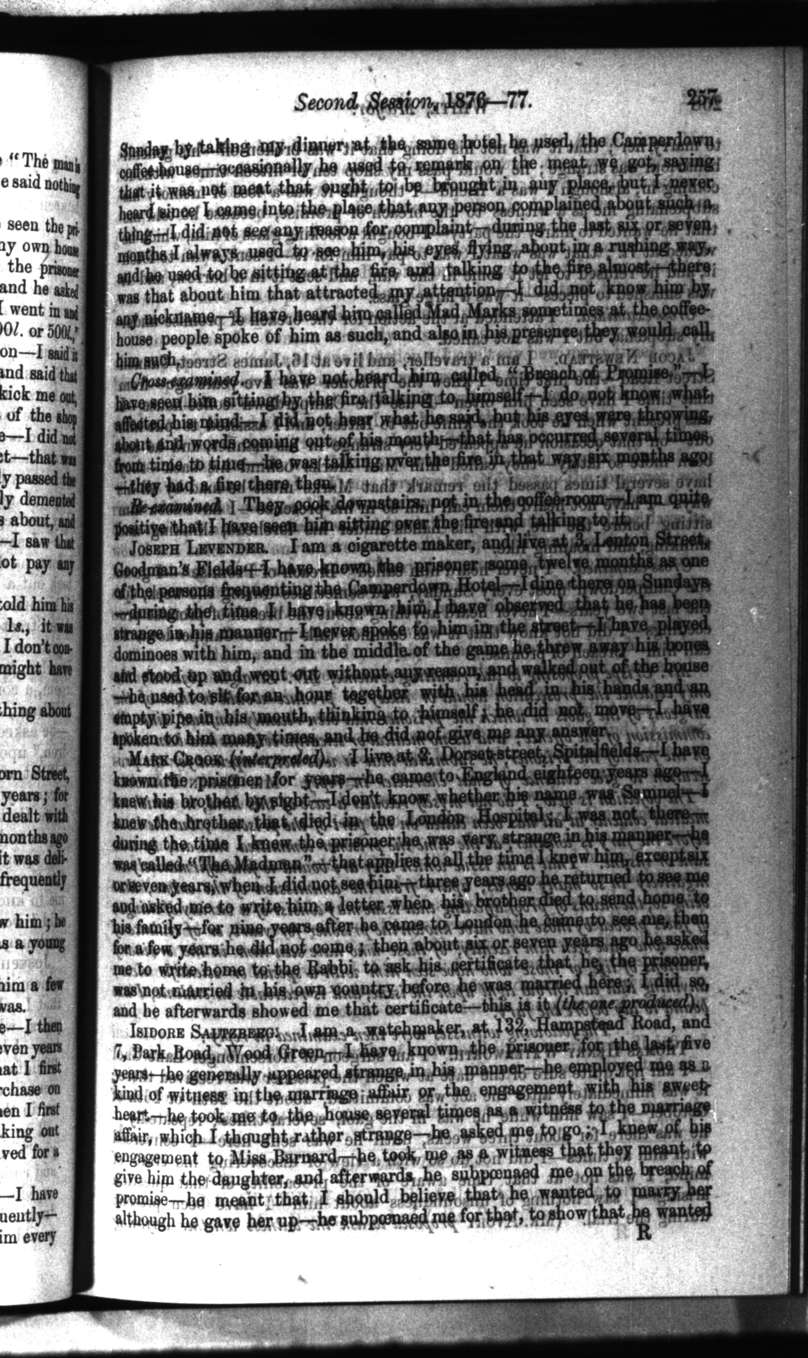 Second Session, 1876—77.
257
Sunday by taking my dinner at the same hotel he used, the Camperdown
coffee-house—occasionally he used to remark on the meat we got, saying
that it was not meat that ought to be brought in any place, but I never
heard since I came into the place that any person complained about such a
thing—I did not see any reason for complaint—during the last six or seven
months I always used to see him, his eyes flying about in a rushing way,
and he used to be sitting at the fire and talking to the fire almost—there
was that about him that attracted my attention—I did not know him by
any nickname—I have heard him called Mad Marks sometimes at the coffee-
house people spoke of him as such, and also in his presence they would call
him such.
Cross-examined. I have not heard him called "Breach of Promise."—I
have seen him sitting by the fire talking to himself—I do not know what
affected his mind—I did not hear what he said, but his eyes were throwing
about and words coming out of his mouth—that has occurred several times
from time to time—he was talking over the fire in that way six months ago
—they had a fire there then.
Re-examined. They cook downstairs, not in the coffee-room—I am quite
positive that I have seen him sitting over the fire and talking to it.
Joseph Levender. I am a cigarette maker, and live at 3, Lenton Street,
Goodman's Fields—I have known the prisoner some twelve months as one
of the persons frequenting the Camperdown Hotel—I dine there on Sundays
—during the time I have known him I have observed that he has been
strange in his manner—I never spoke to him in the street—I have played
dominoes with him, and in the middle of the game he threw away his bones
and stood up and went out without any reason, and walked out of the house
—he used to sit for an hour together with his head in his hands and an
empty pipe in his mouth, thinking to himself; he did not move—I have
spoken to him many times, and he did not give me any answer.
Mark Crook (interpreted). I live at 2, Dorset street, Spitalfields—I have
known the prisoner for years—he came to England eighteen years ago—I
knew his brother by sight—I don't know whether his name was Samuel—I
knew the brother that died in the London Hospital; I was not there—
during the time I knew the prisoner he was very strange in his manner—he
was called "The Madman"—that applies to all the time I knew him, except six
or seven years, when I did not see him—three years ago he returned to see me
and asked me to write him a letter when his brother died to send home to
his family—for nine years after he came to London he came to see me, then
for a few years he did not come; then about six or seven years ago he asked
me to write home to the Rabbi to ask his certificate that he, the prisoner,
was not married in his own country before he was married here; I did so,
and he afterwards showed me that certificate—this is it (the one produced).
Isidore Saltzberg. I am a watchmaker, at 132, Hampstead Road, and
7, Park Road, Wood Green—I have known the prisoner for the last five
years—he generally appeared strange in his manner—he employed me as a
kind of witness in the marriage affair or the engagement with his sweet-
heart—he took me to the house several times as a witness to the marriage
affair, which I thought rather strange—he asked me to go; I knew of his
engagement to Miss Barnard—he took me as a witness that they meant to
give him the daughter, and afterwards he subpœnaed me on the breach of
promise—he meant that I should believe that he wanted to marry her
although he gave her up—he subpœnaed me for that, to show that he wanted
R
"The man's
e said nothing
seen the pri-
my own house
the prisoner
and he asked
I went in and
00l. or 500l.,"
on—I said it
and said that
kick me out,
of the shop
e—I did not
ct—that was
ly passed the
ly demented
s about, and
—I saw that
ot pay any
told him his
1s., it was
I don't con-
might have
thing about
orn Street,
years; for
dealt with
months ago
it was deli-
frequently
w him; he
s a young
him a few
was.
e—I then
even years
at I first
rchase on
en I first
king out
ved for a
—I have
uently—
im every